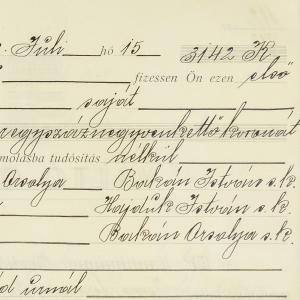 Juli hó 15 3142 K
fizessen Ön ezen első
saját
negyszáznegyvenkettő koronát
molásba tudósítás nélkül
Orsolya Bakán István s.k.
Hajduk István s.k.
Bakán Orsolya s.k.
úrnál